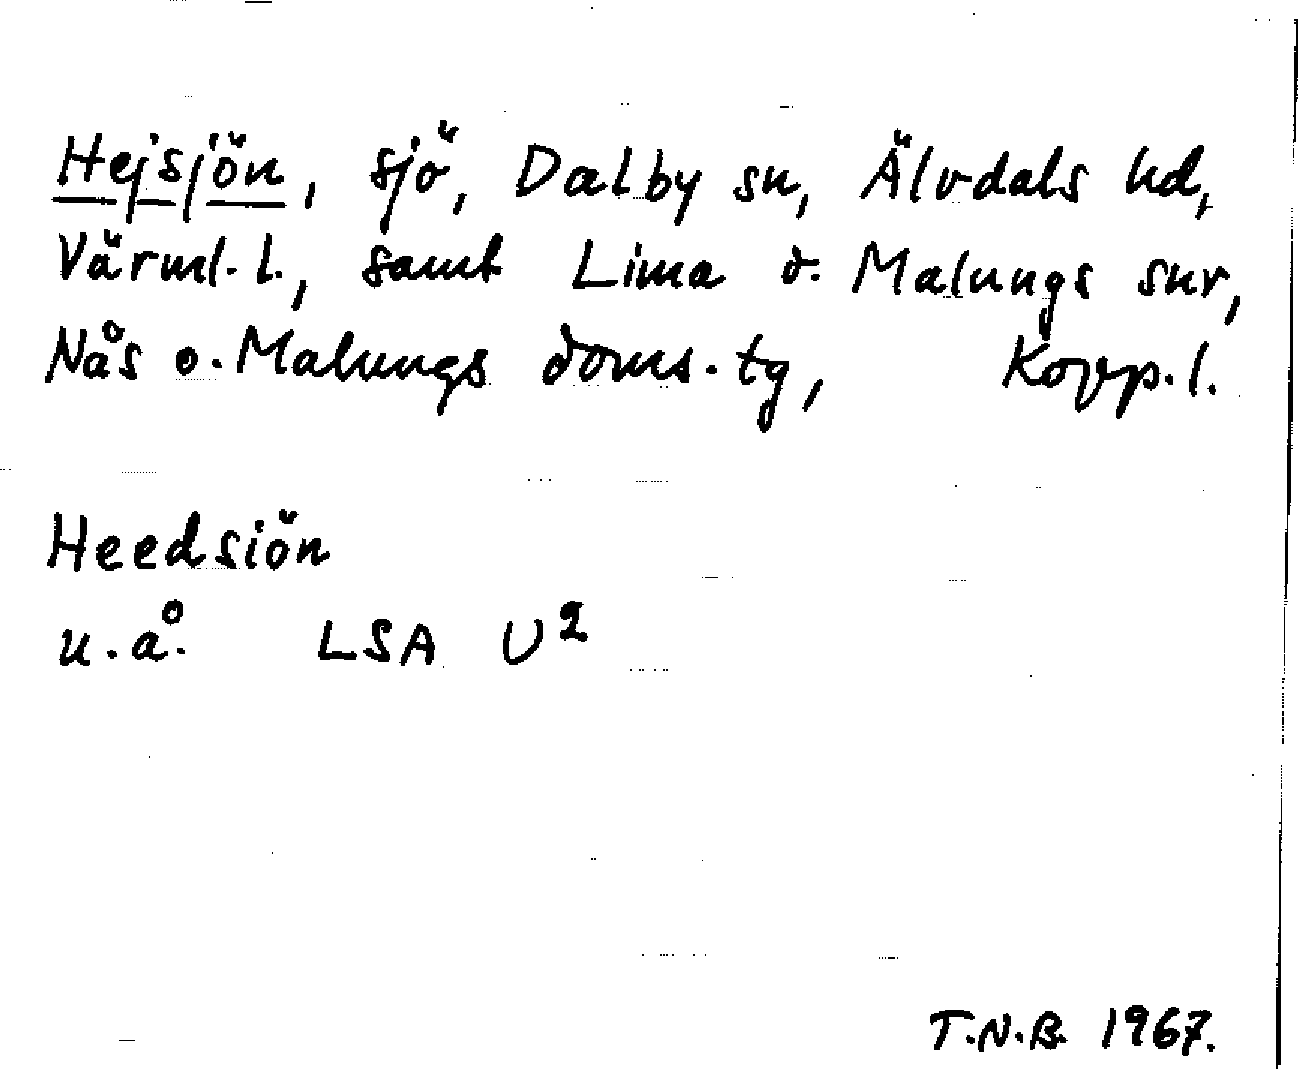 Hejsjön, sjö, Dalby sn, Älvdals hd,
Värml. l., samt Lima o. Malungs snr,
Nås o. Malungs doms. tg, Kopp. l.
Heedsiön
u. å. LSA U²
T.N.B. 1967.